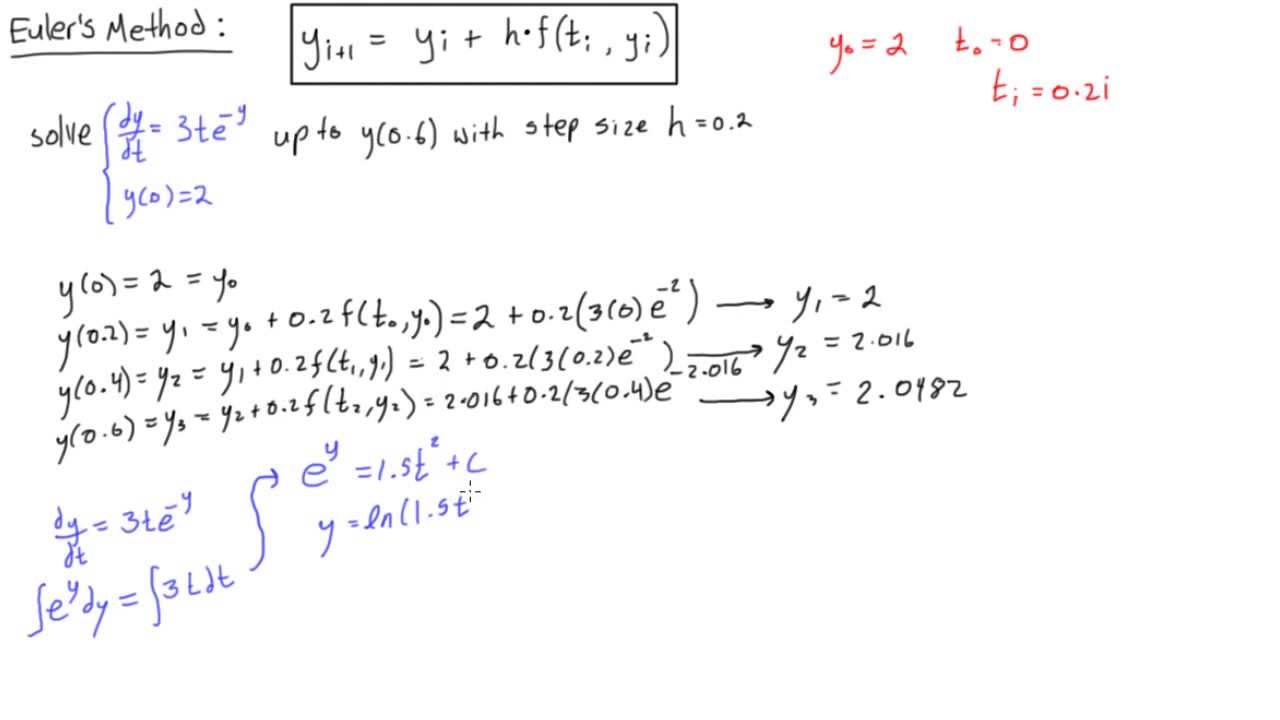 Euler's Method :
y_{i+1} = y_i + h·f(t_i , y_i)
y_0 = 2 t_0 = 0
t_i = 0.2i
solve { dy/dt = 3te^{-y} up to y(0.6) with step size h = 0.2
y(0) = 2
y(0) = 2 = y_0
y(0.2) = y_1 = y_0 + 0.2f(t_0, y_0) = 2 + 0.2(3(0)e^{-2}) → y_1 = 2
y(0.4) = y_2 = y_1 + 0.2f(t_1, y_1) = 2 + 0.2(3(0.2)e^{-2}) → y_2 = 2.016
y(0.6) = y_3 = y_2 + 0.2f(t_2, y_2) = 2.016 + 0.2(3(0.4)e^{-2.016} → y_3 = 2.0482
dy/dt = 3te^{-y}
∫e^y dy = ∫3t dt
e^y = 1.5t^2 + c
y = ln(1.5t